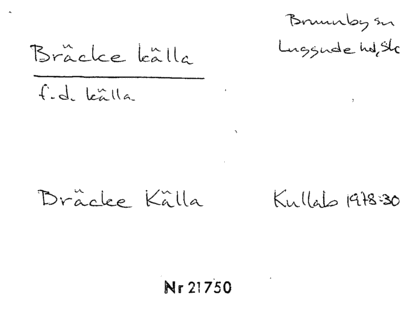 Bräcke källa
Brunnby sn
Luggude hd, Sk
f.d. källa.
Bräcke Källa
Kullab 1978:30
Nr 21750